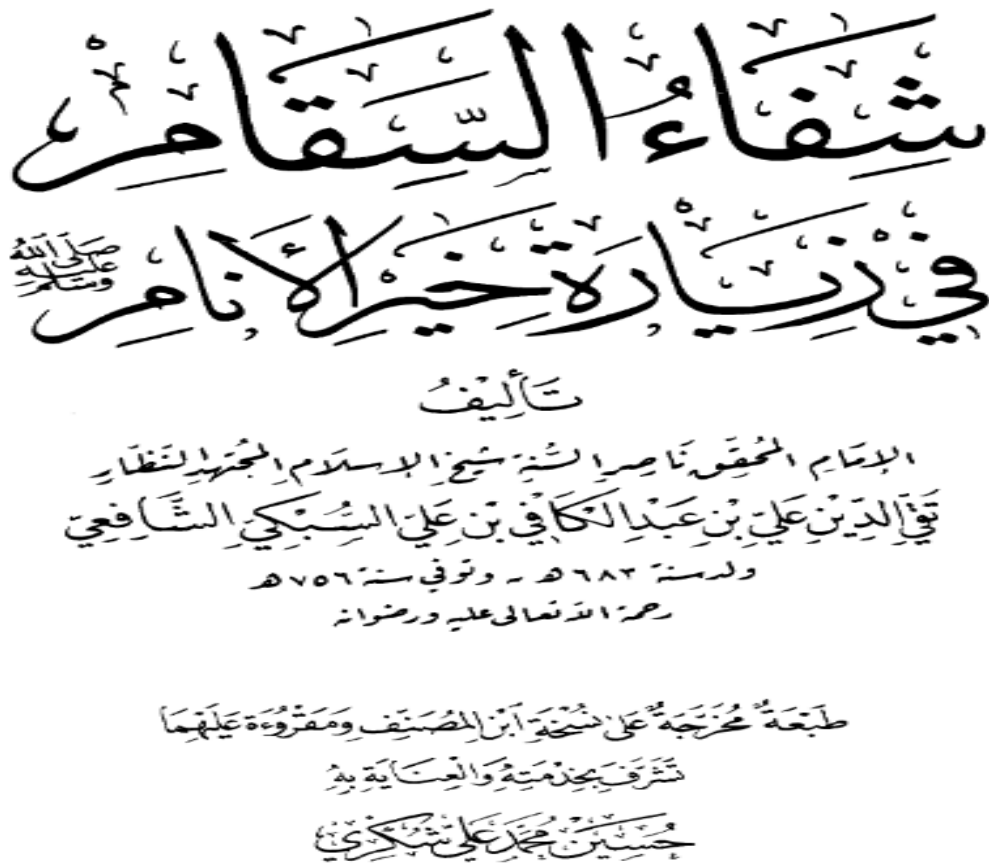 شِفَاءُ السَّقَامِ
فِي زِيَارَةِ خَيْرِ الأَنَامِ صَلَّى اللهُ عَلَيْهِ وَسَلَّمَ
تَأْلِيفُ
الإِمَامِ المُحَقِّقِ نَاصِرِ السُّنَّةِ شَيْخِ الإِسْلَامِ المُجْتَهِدِ النَّظَّارِ
تَقِيِّ الدِّيْنِ عَلِيِّ بْنِ عَبْدِ الكَافِي بْنِ عَلِيّ السُّبْكِيِّ الشَّافِعِيِّ
ولد سنة ٦٨٣ هـ - وتوفي سنة ٧٥٦ هـ
رحمة الله تعالى عليه ورضوانه
طَبْعَةٌ مُخَرَّجَةٌ عَلَى نُسْخَةِ ابْنِ المُصَنِّفِ وَمَقْرُوءَة عَلَيْهِمَا
تَشَرَّفَ بِخِدْمَتِهِ وَالْعِنَايَةِ بِهِ
حُسَيْن مُحَمَّد عَلِي شُكْرِي